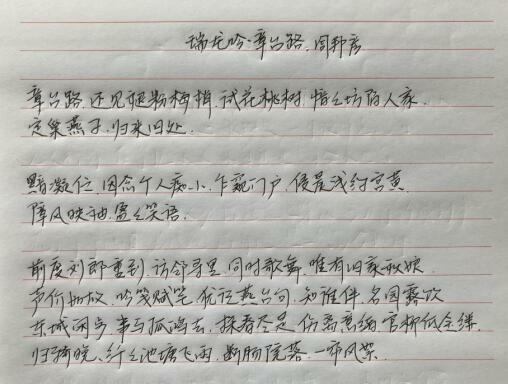 瑞龙吟·章台路 周邦彦
章台路,还见褪粉梅梢,试花桃树,愔愔坊陌人家,
定巢燕子,归来旧处。
黯凝伫,因念个人痴小,乍窥门户,侵晨浅约宫黄,
障风映袖,盈盈笑语。
前度刘郎重到,访邻寻里,同时歌舞,唯有旧家秋娘,
声价如故,吟笺赋笔,犹记燕台句,知谁伴,名园露饮,
东城闲步,事与孤鸿去,探春尽是,伤离意绪,官柳低金缕,
归骑晚、纤纤池塘飞雨,断肠院落,一帘风絮。